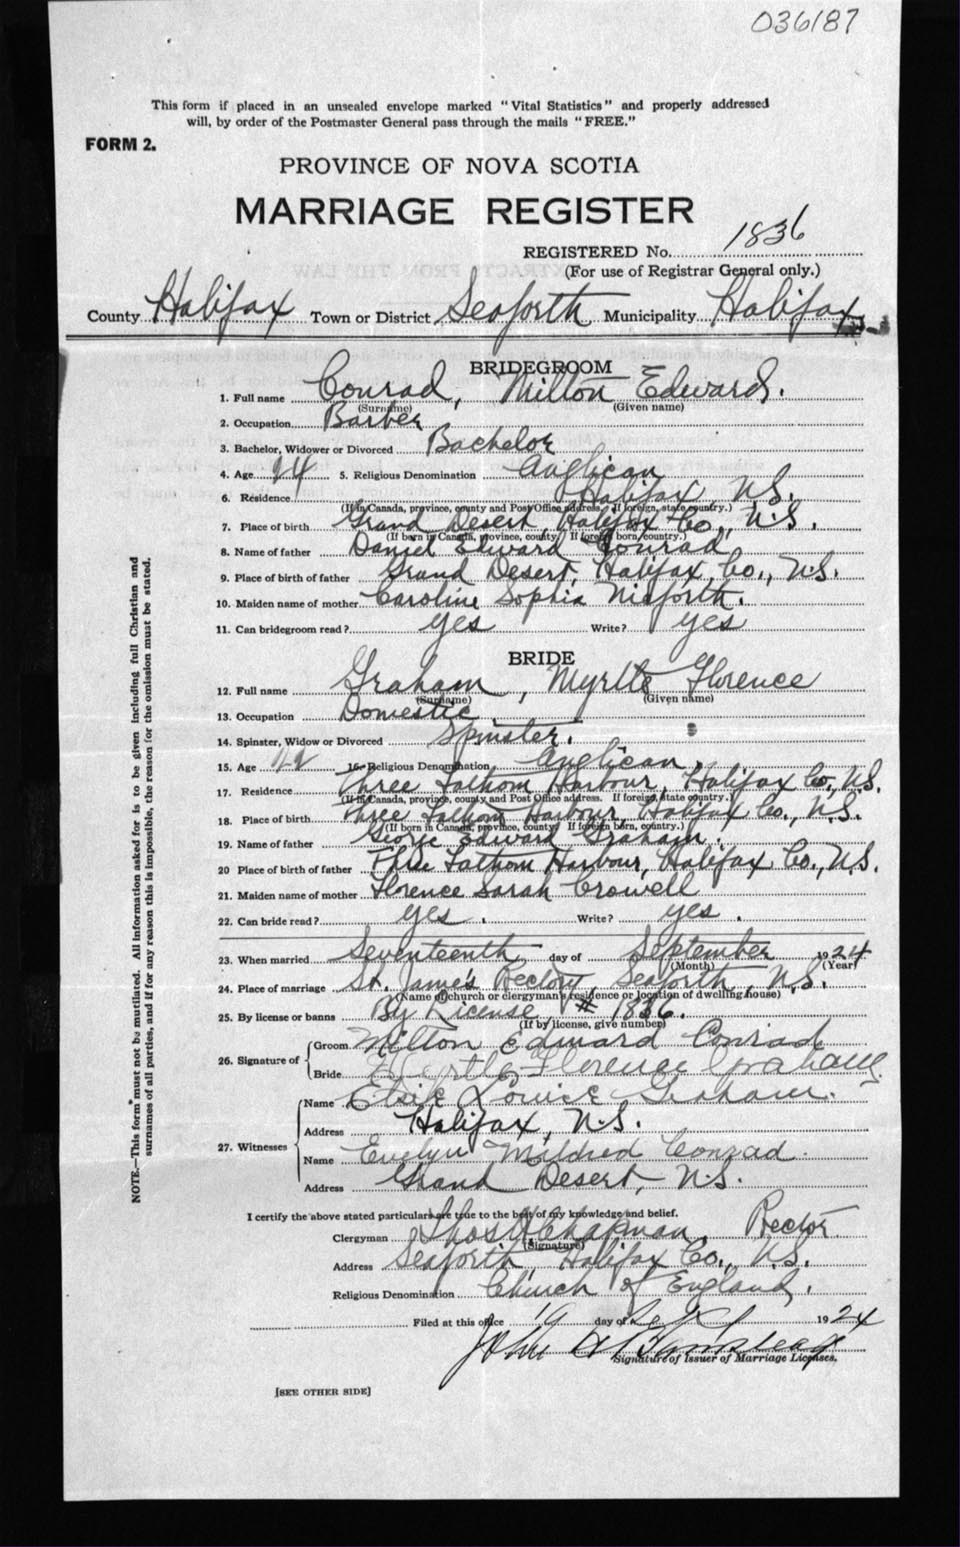 036187
This form if placed in an unsealed envelope marked "Vital Statistics" and properly addressed
will, by order of the Postmaster General pass through the mails "FREE."
FORM 2.
PROVINCE OF NOVA SCOTIA
MARRIAGE REGISTER
REGISTERED No. 1836
(For use of Registrar General only.)
County Halifax Town or District Seaforth Municipality Halifax
BRIDEGROOM
1. Full name Conrad, Milton Edward.
(Surname) (Given name)
2. Occupation Barber
3. Bachelor, Widower or Divorced Bachelor
4. Age 24 5. Religious Denomination Anglican
6. Residence Halifax N.S.
(If in Canada, province, county and Post Office address. If foreign, state country.)
7. Place of birth Grand Desert, Halifax Co., N.S.
(If born in Canada, province, county. If foreign born, country.)
8. Name of father Daniel Edward Conrad
9. Place of birth of father Grand Desert, Halifax Co., N.S.
10. Maiden name of mother Caroline Sophia Nieforth.
11. Can bridegroom read? yes Write? yes
BRIDE
12. Full name Graham, Myrtle Florence
(Surname) (Given name)
13. Occupation Domestic
14. Spinster, Widow or Divorced Spinster.
15. Age 16. Religious Denomination Anglican
17. Residence Three Fathom Harbour, Halifax Co., N.S.
(If in Canada, province, county and Post Office address. If foreign, state country.)
18. Place of birth Three Fathom Harbour, Halifax Co., N.S.
(If born in Canada, province, county. If foreign born, country.)
19. Name of father George Edward Graham.
20 Place of birth of father Three Fathom Harbour, Halifax Co., N.S.
21. Maiden name of mother Florence Sarah Crowell
22. Can bride read? yes. Write? yes.
23. When married Seventeenth day of September 1924
(Month) (Year)
24. Place of marriage St. James Rectory, Seaforth, N.S.
(Name of church or clergyman's residence or location of dwelling house)
25. By license or banns By License, # 1836.
(If by license, give number)
26. Signature of
Groom Milton Edward Conrad
Bride Myrtle Florence Graham
27. Witnesses
Name Elsie Louise Graham.
Address Halifax, N.S.
Name Evelyn Mildred Conrad.
Address Grand Desert, N.S.
I certify the above stated particulars are true to the best of my knowledge and belief.
Clergyman Thos H Chapman, Rector
(Signature)
Address Seaforth, Halifax Co., N.S.
Religious Denomination Church of England.
Filed at this office day of Sept 1924
John
Signature of Issuer of Marriage Licenses.
[SEE OTHER SIDE]
NOTE.—This form must not be mutilated. All information asked for is to be given including full Christian and
surnames of all parties, and if for any reason this is impossible, the reason for the omission must be stated.